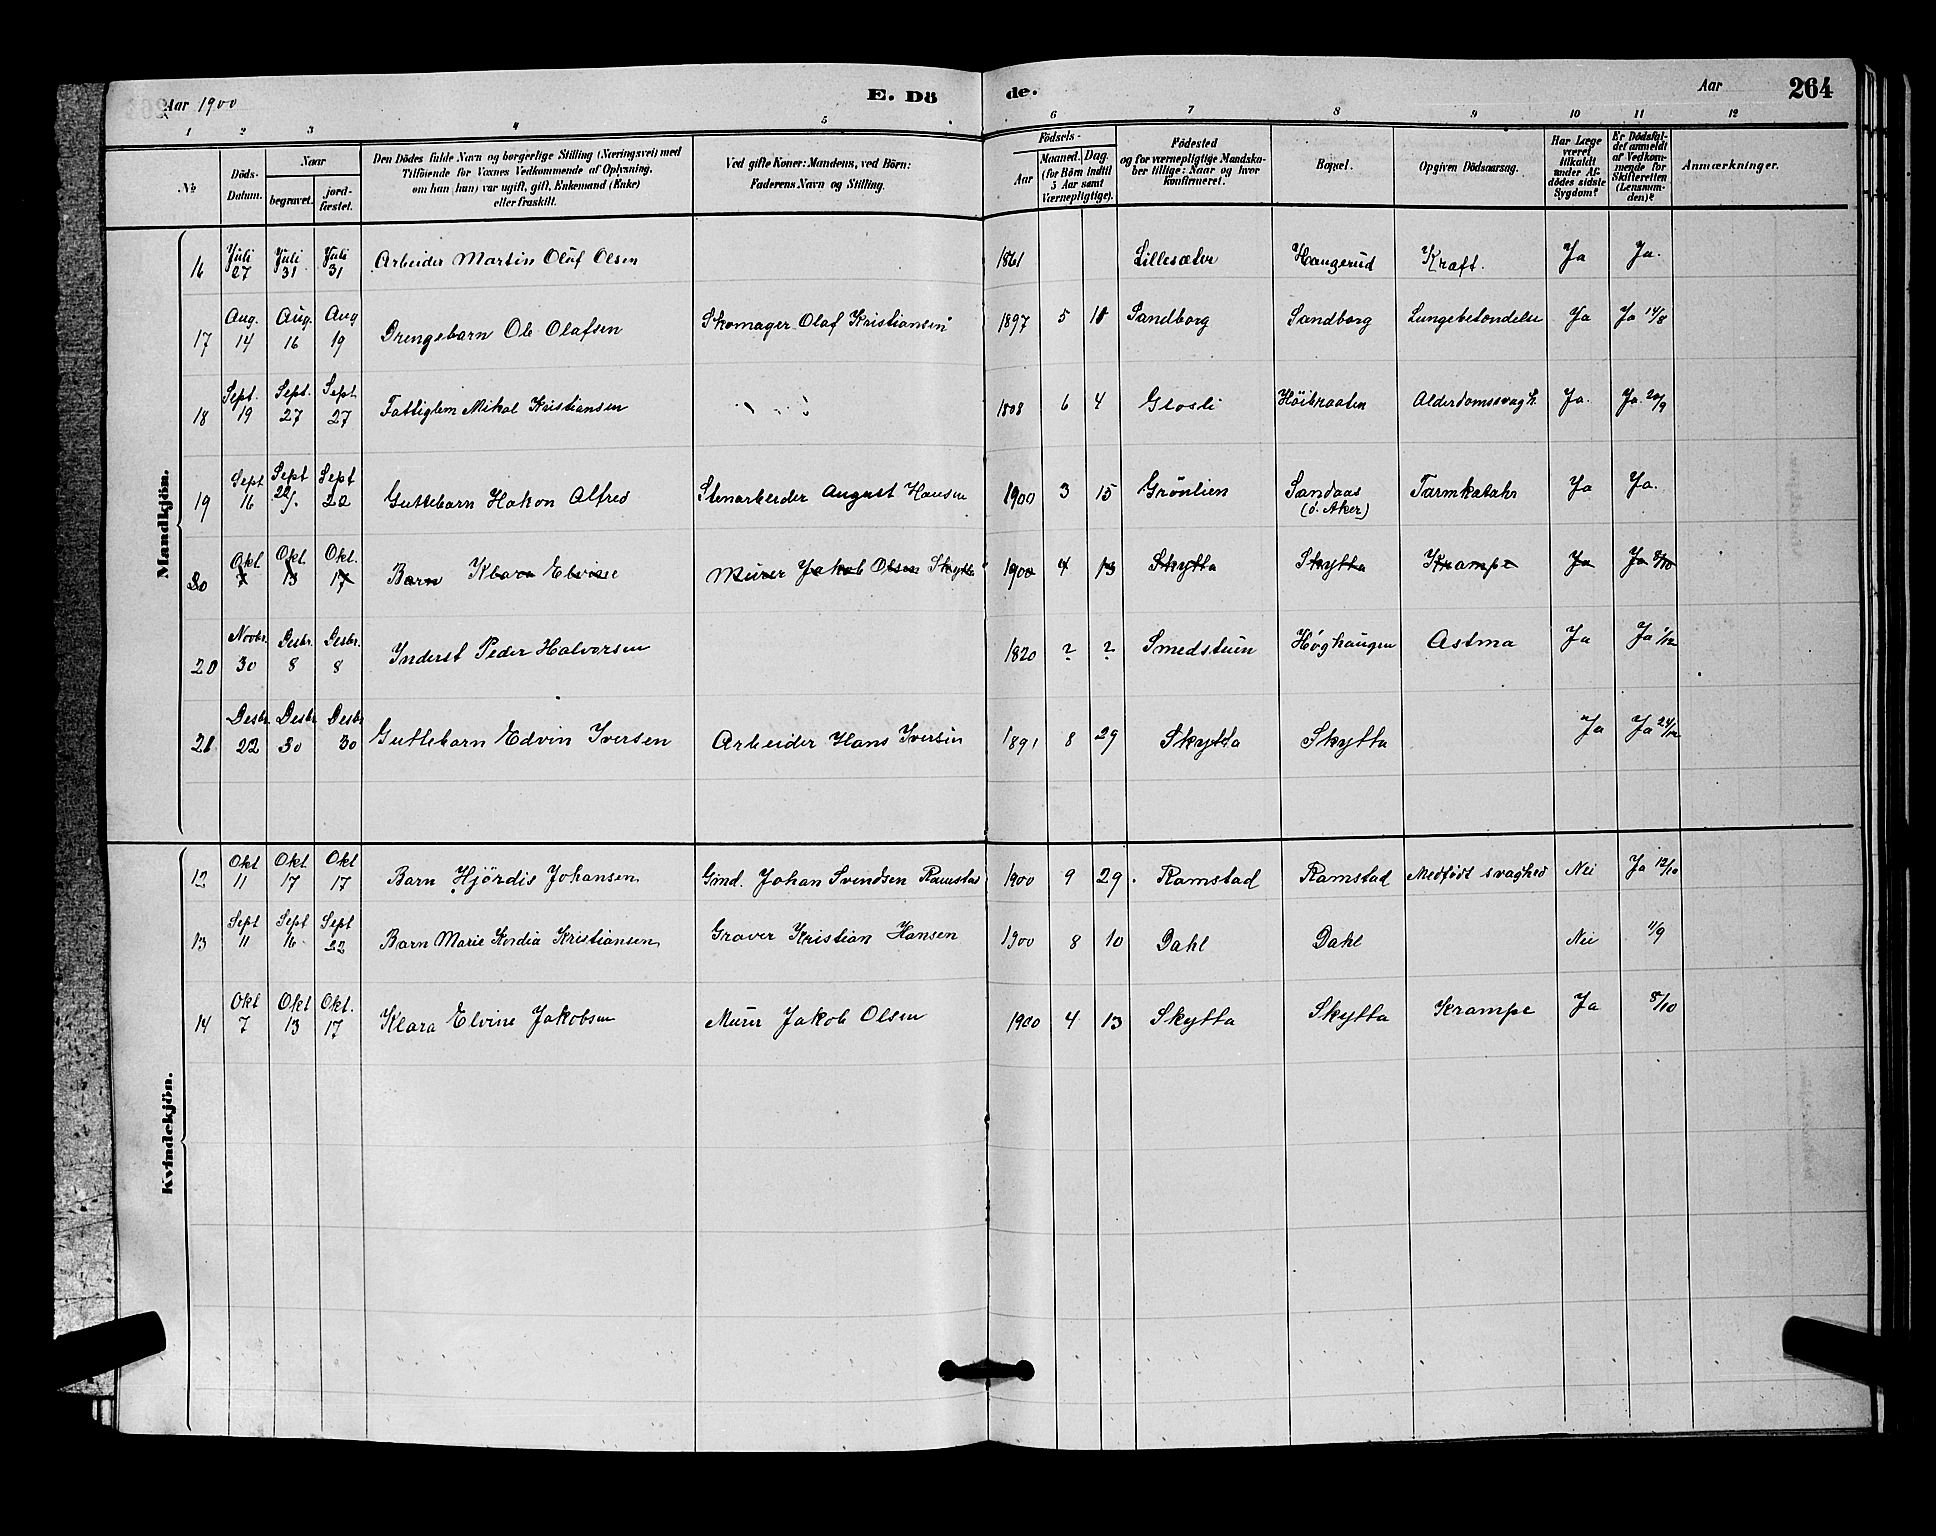 Aar 1900 E. Dö de. Aar 264
1 2 3 4 5 6 7 8 9 10 11 12
No Döds-Datum. Naar begravet. jord-fæstet. Den Dödes fulde Navn og borgerlige Stilling (Næringsvei) med Tilföiende for Voxnes Vedkommende af Oplysning, om han (hun) var ugift, gift, Enkemand (Enke) eller fraskilt. Ved gifte Koner: Mandens, ved Börn: Faderens Navn og Stilling. Födsels- Aar Maaned. Dag. (for Börn indtil 5 Aar samt Værnepligtige). Födested og for værnepligtige Mandska-ber tillige: Naar og hvor konfirmeret. Bopæl. Opgiven Dödsaarsag. Har Læge været tilkaldt under Af-dödes sidste Sygdom? Er Dödsfal-det anmeldt af Vedkom-mende for Skifteretten (Lensman-den)? Anmærkninger.
Mandkjön.
16 Juli 27 Juli 31 Juli 31 Arbeider Martin Oluf Olsen 1861 Lillesæter Haugerud Kræft. Ja Ja.
17 Aug. 14 Aug. 16 Aug 19 Drengebarn Ole Olafsen Skomager Olaf Kristiansen 1897 5 Sandborg Sandborg Lungebetændelse Ja Ja 14/8
18 Sept. 19 Sept. 27 Sept 27 Fattiglem Mikal Kristiansen 1808 6 4 Glosli Höibraaten Alderdomssvagh. Ja. Ja 20/9
19 Sept 16 Sept 22/9. Sept 22 Guttebarn Hakon Alfred Stenarbeider August Hansen 1900 3 15 Grönlien Sandaas (ö. Aker) Tarmkatahr Ja Ja.
20 Okt 7 Okt 13 Okt. 17 Barn Klara Elvine Murer Jakob Olsen Skytta 1900 4 13 Skytta Skytta Krampe Ja Ja 8/10
20 Novbr. 30 Desbr. 8 Desbr. 8 Inderst Peder Halvorsen 1820 ? ? Smedstuen Høghaugen Astma Ja Ja 1/12
21 Desbr. 22 Desbr 30 Desbr 30 Guttebarn Edvin Iversen Arbeider Hans Iversen 1891 8 29 Skytta Skytta Ja Ja 24/12
Kvindekjön.
12 Okt 11 Okt 17 Okt 17 Barn Hjördis Johansen Gmd. Johan Svendsen Ramstad 1900 9 29. Ramstad Ramstad Medfödt svaghed Nei Ja 12/10
13 Sept 11 Sept 16 Sept 22 Barn Marie Kristiansen Graver Kristian Hansen 1900 8 10 Dahl Dahl Nei 11/9
14 Okt 7 Okt 13 Okt. 17 Klara Elvine Jakobsen Murer Jakob Olsen 1900 4 13 Skytta Skytta Krampe Ja 8/10